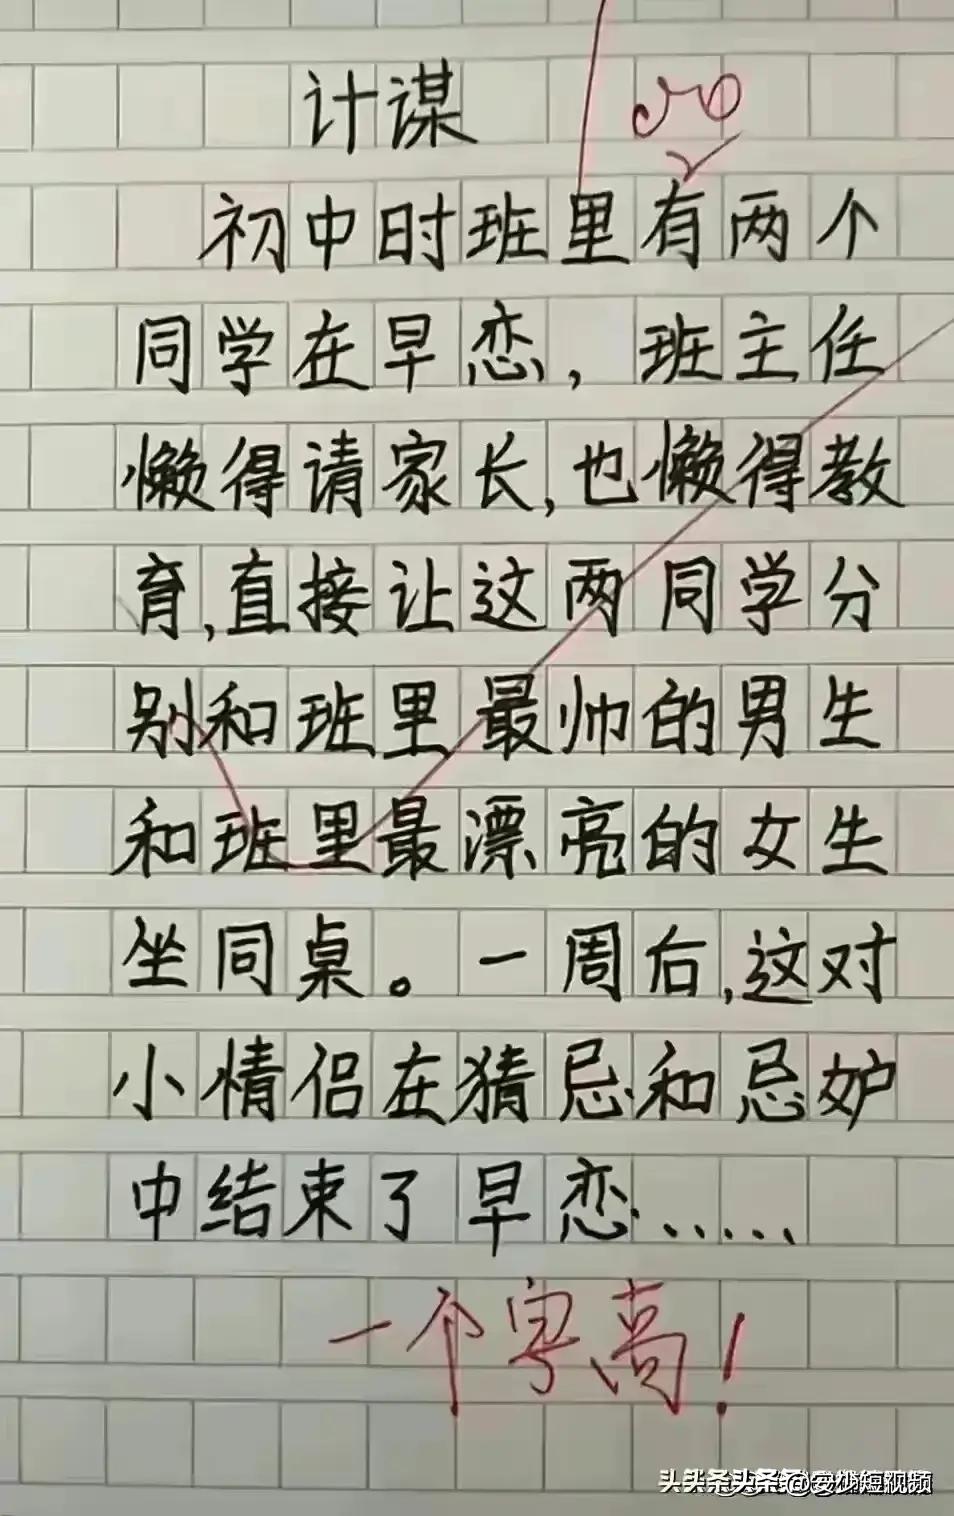 计谋
初中时班里有两个
同学在早恋，班主任
懒得请家长,也懒得教
育,直接让这两同学分
别和班里最帅的男生
和班里最漂亮的女生
坐同桌。一周后,这对
小情侣在猜忌和忌妒
中结束了早恋......
一个字高！